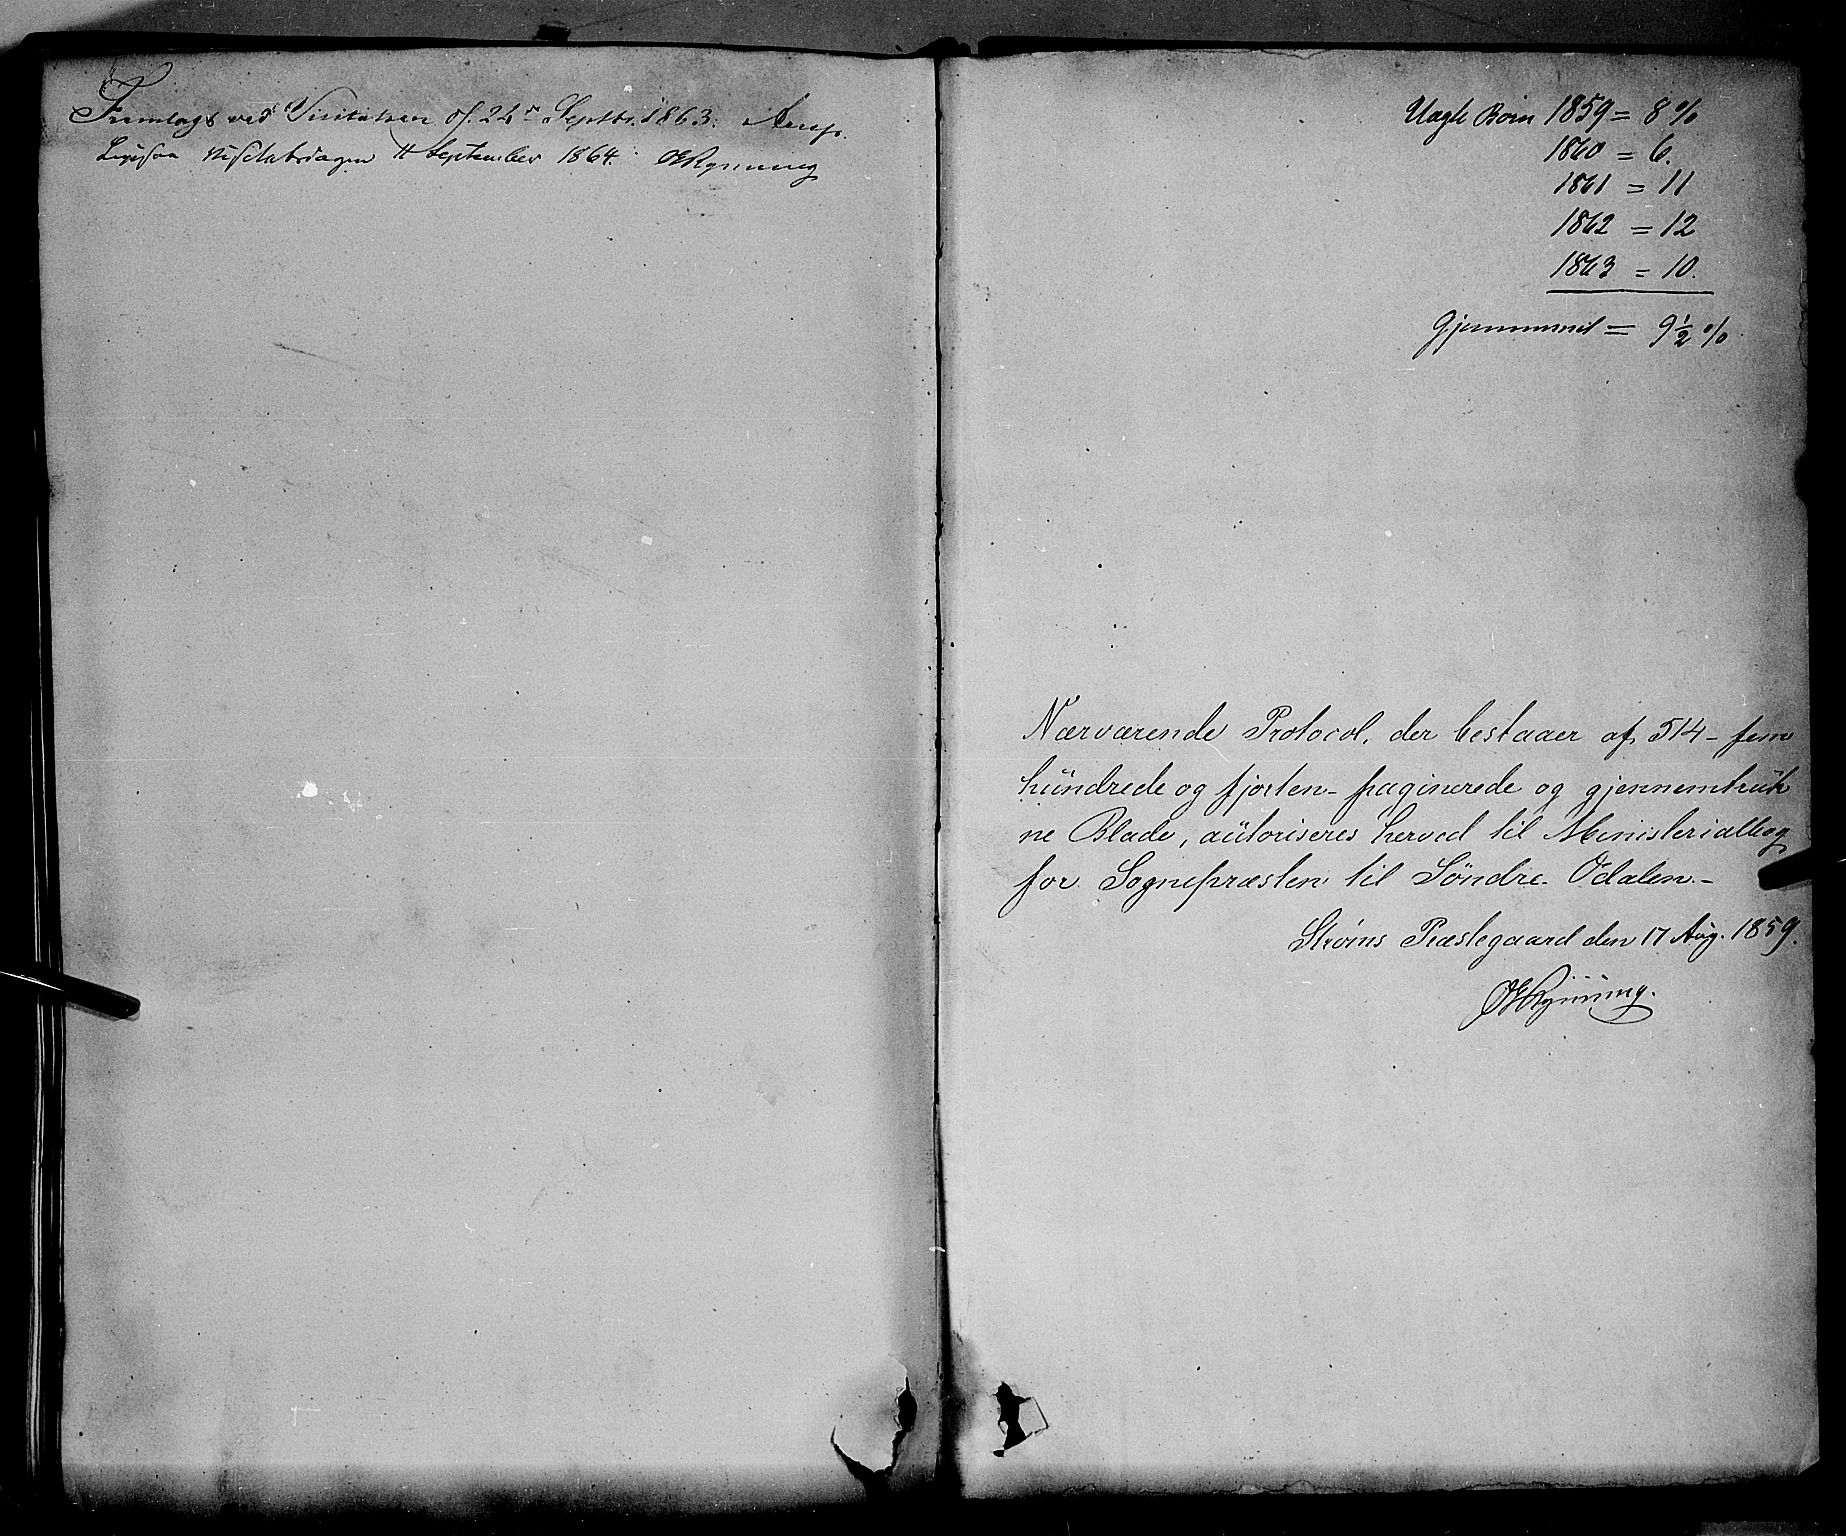 Fremlagt ved Visitatsen d. 22de Septbr. 1863. Arup.
Ligesaa 11 September 1864. OERynning
Uægte Børn 1859 = 8 %
1860 = 6.
1861 = 11
1862 = 12
1863 = 10.
Gjennemsnit = 9½ %
Nærværende Protocol, der bestaaer af 514 - fem
hundrede og fjorten - paginerede og gjennemtruk
ne Blade, autoriseres herved til Ministerialbog
for Sognepræsten til Søndre Odalen. -
Strøms Præstegaard den 17 Aug. 1859.
OERynning.